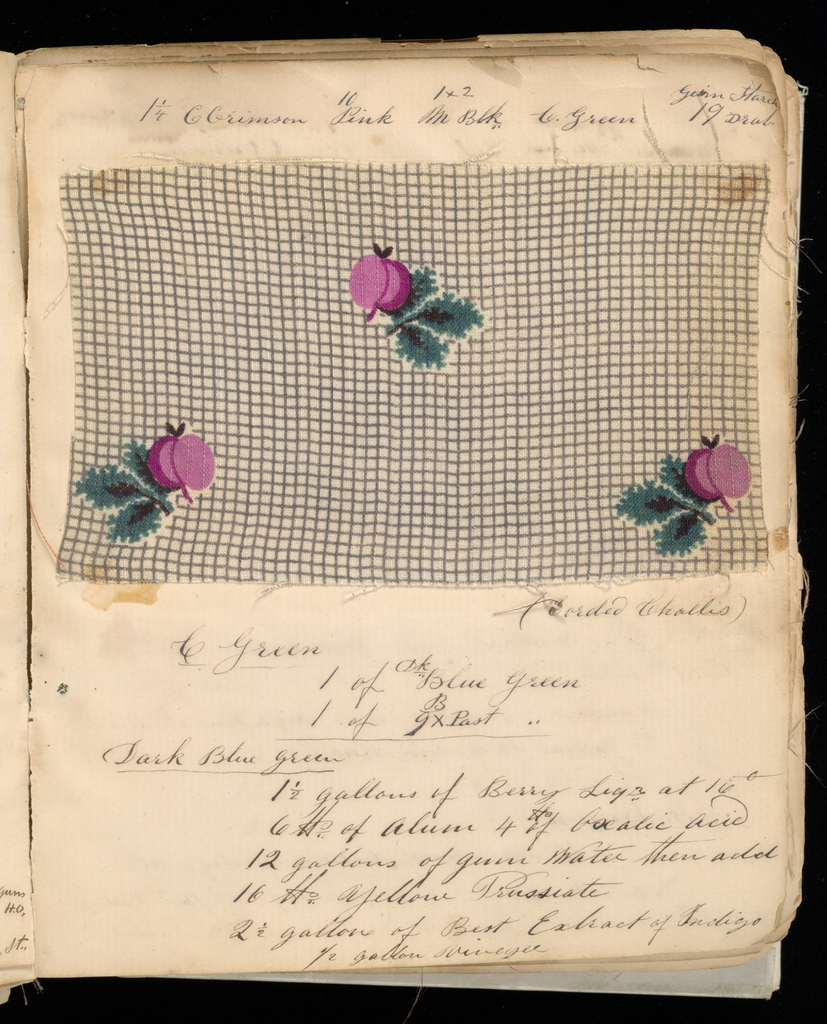 10 1x2 Gum Starch
1¼ C Crimson Pink M Blk C. Green 19 Drab
(Corded Challis)
C Green
1 of Dk Blue Green
B
1 of 9x Past "
Dark Blue green
1½ gallons of Berry Liqr at 16°
6 ℔s. of Alum 4 ℔s of Oxalic acid
12 gallons of gum Water then add
16 ℔s. Yellow Prussiate
2½ gallon of Best Extract of Indigo
½ gallon vinegar
gum
H.O,
St.